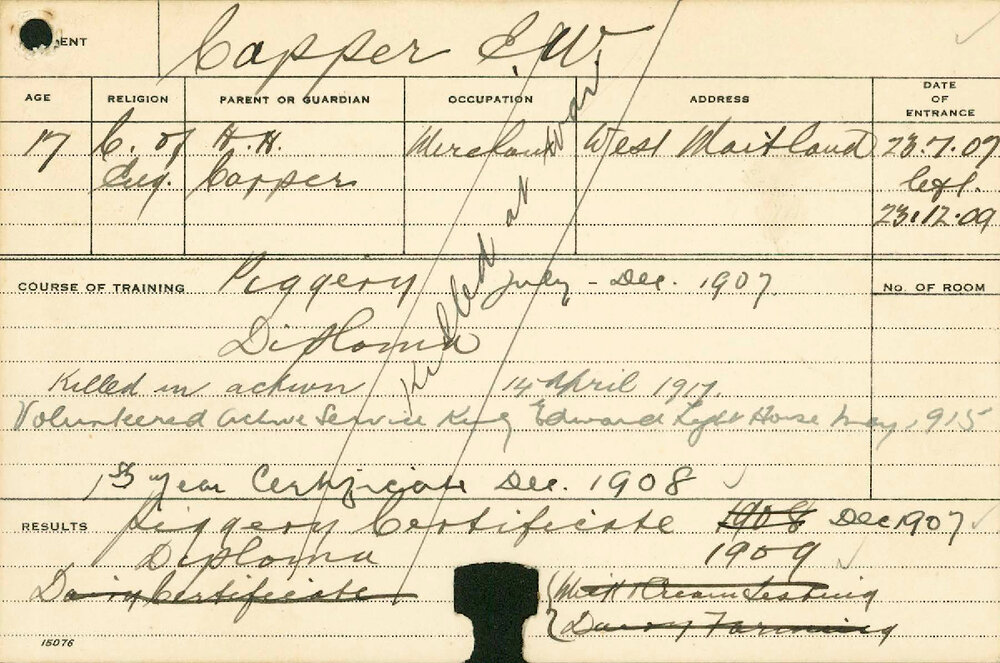 ENT Capper E.W.
AGE RELIGION PARENT OR GUARDIAN OCCUPATION ADDRESS DATE OF ENTRANCE
17 C. of H. H. Merchant West Maitland 23.7.07
Eng. Capper
23.12.09
Killed at war.
COURSE OF TRAINING Piggery July - Dec. 1907. No. OF ROOM
Diploma
Killed in action 14 April 1917.
Volunteered active Service King Edward Light Horse May 1915
1st year Certificate Dec. 1908
RESULTS Piggery Certificate 1908 Dec 1907
Diploma 1909
Dairy Certificate (Milk & Cream Testing
(Dairy Farming
15076